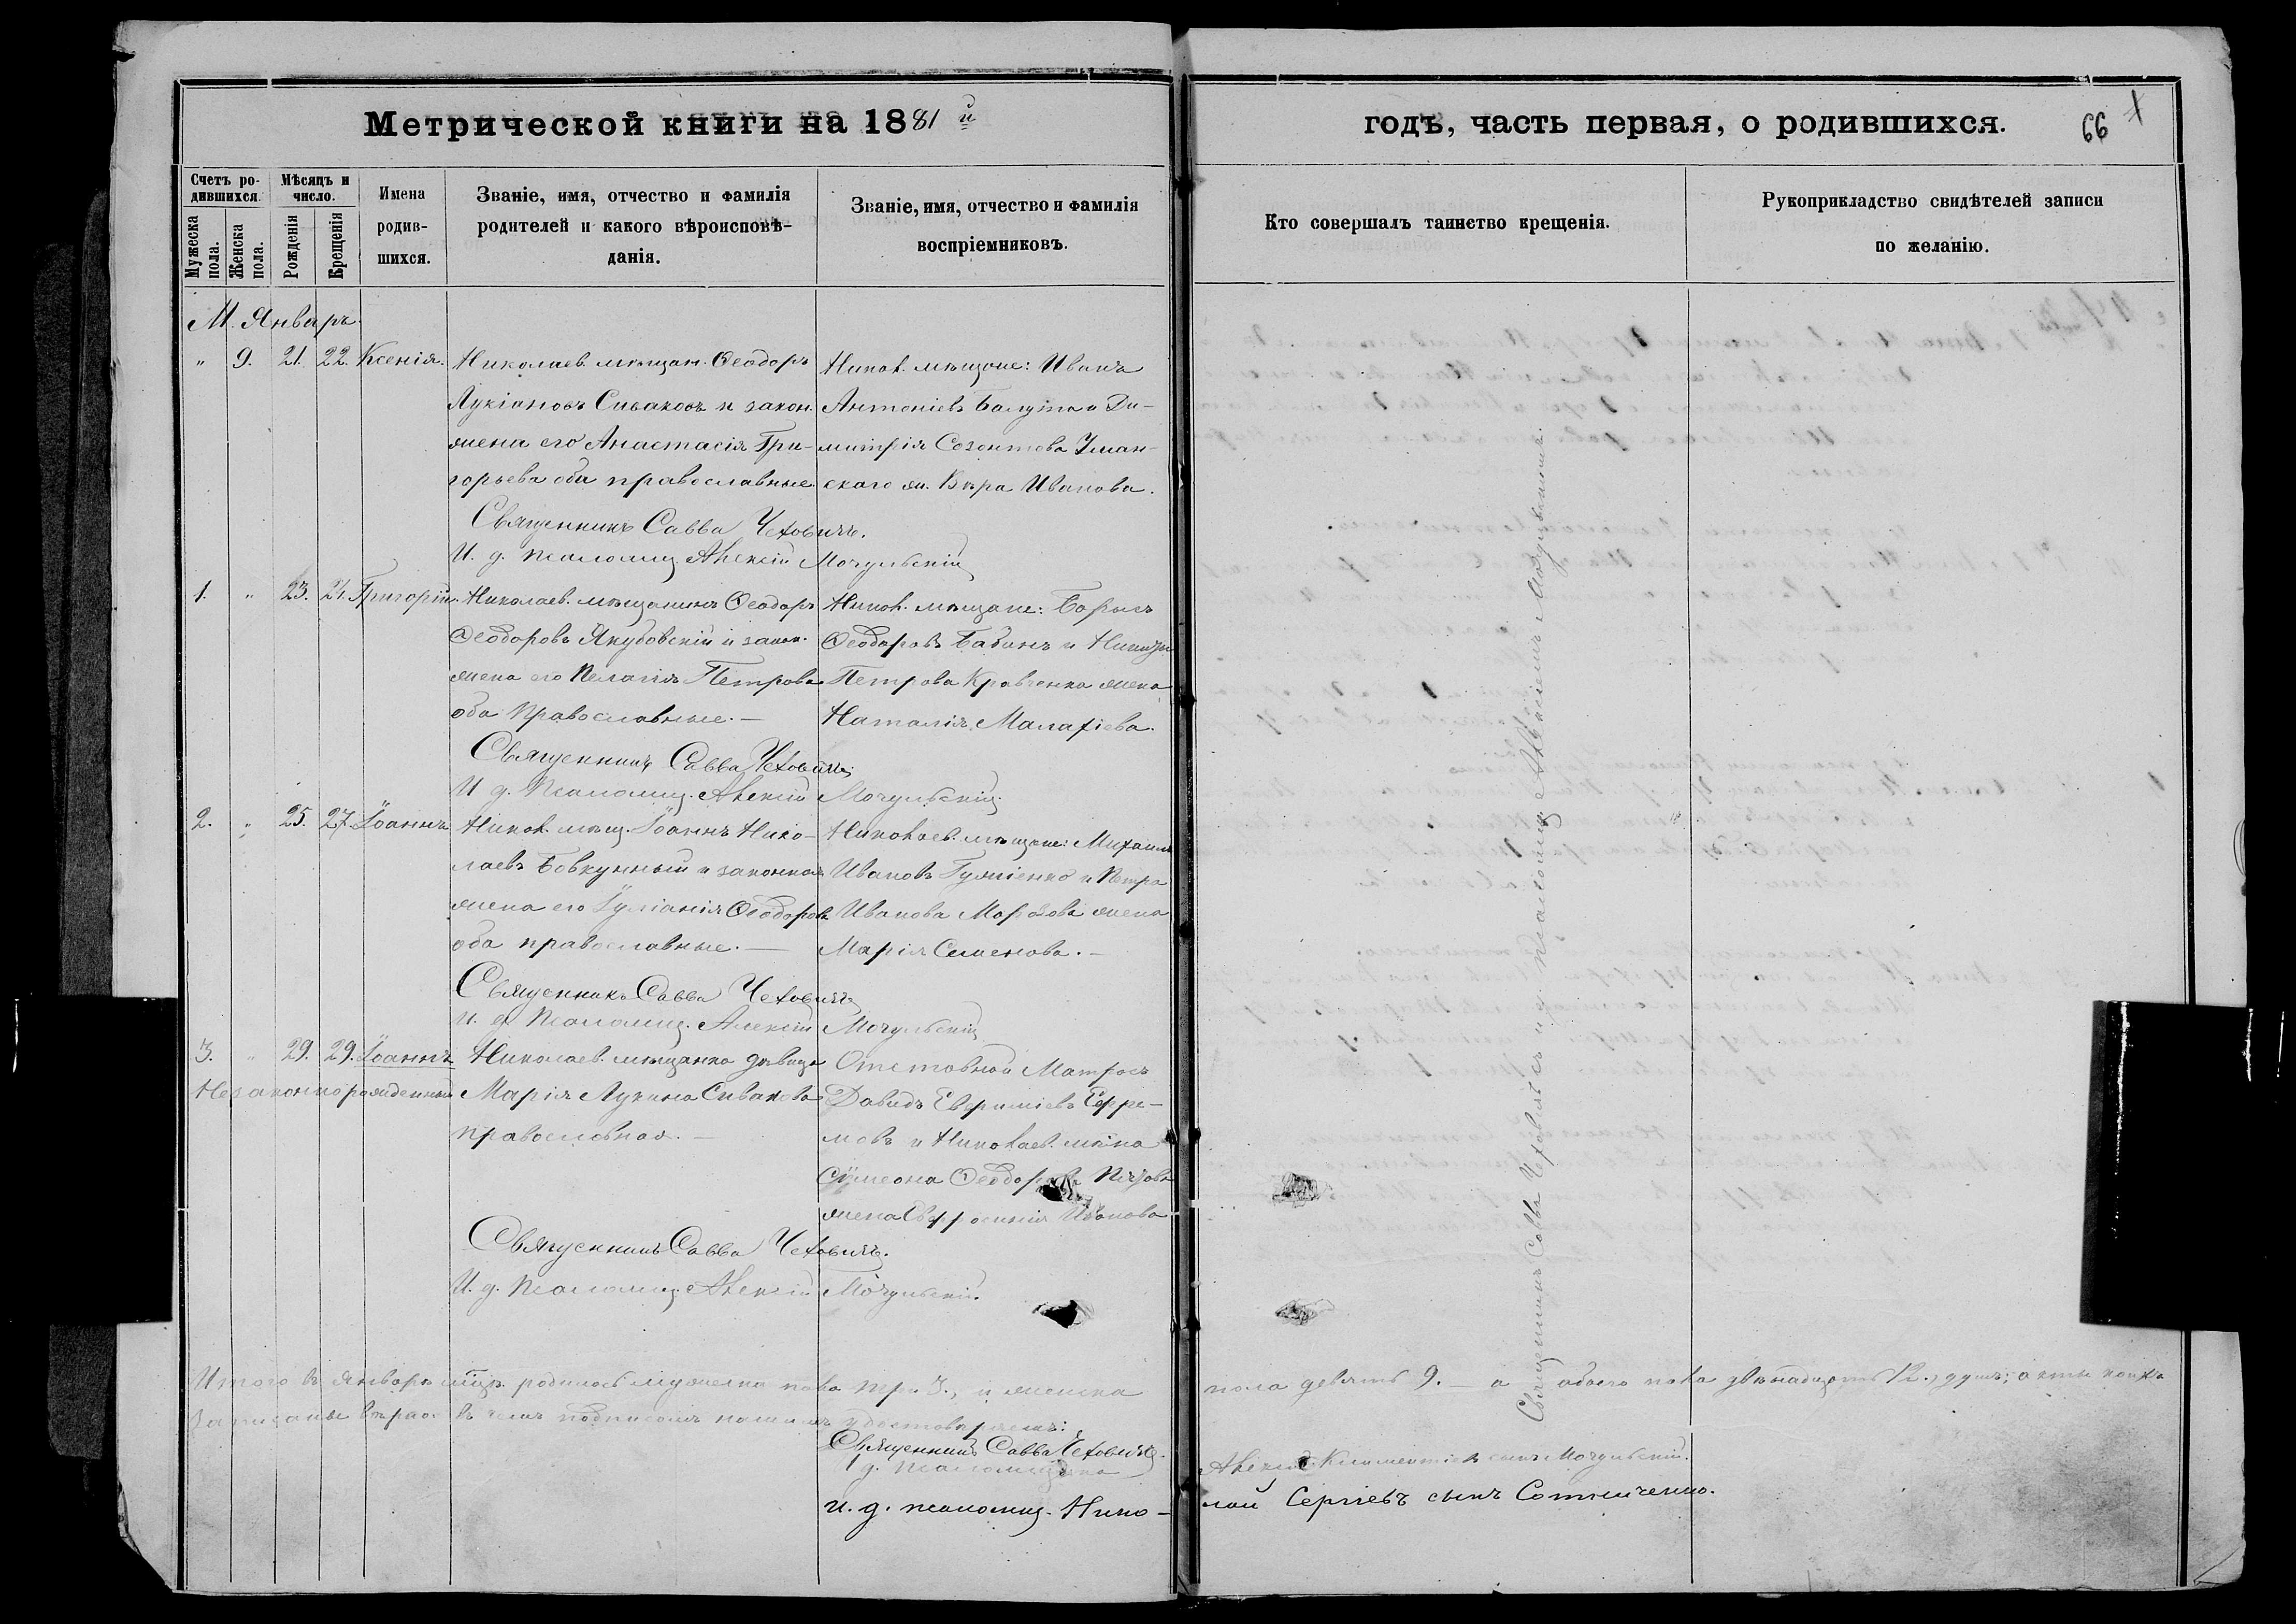 Метрической книги на 1881й
годъ, часть первая, о родившихся.
66
Счетъ родившихся.
Мужеска пола.
Женска пола.
Мѣсяцъ и число.
Рожденія
Крещенія
Имена родившихся.
Званіе, имя, отчество и фамилія
родителей и какого вѣроисповѣ-
данія.
Званіе, имя, отчество и фамилія
воспріемниковъ.
Кто совершалъ таинство крещенія.
Рукоприкладство свидѣтелей записи
по желанію.
М. Январь.
" 9. 21. 22. Ксенія.
Николаев. мѣщан. Ѳеодоръ
Лукіановъ Сиваковъ и закон.
жена его Анастасія Гри-
горьева оба православные.
Никол. мѣщане: Иванъ
Антоніевъ и Ди-
митрія Созонтова Уман-
ского ж. Вѣра Иванова.
Священникъ Савва Чеховичъ.
И. д. псаломщ. Алексій Мочульскій
1. " 23. 24. Григорій.
Николаев. мѣщанинъ Ѳеодоръ
Ѳеодоровъ Якубовскій и закон.
жена его Пелагія Петрова
оба православные.—
Никол. мѣщане: Борисъ
Ѳеодоровъ Бабинъ и Никиты
Петрова Кравченка жена
Наталія Малахіева.
Священникъ Савва Чеховичъ
И. д. Псаломщ. Алексій Мочульскій.
2. " 25. 27. Іоаннъ
Никол. мѣщ. Іоаннъ Нико-
лаевъ Бовкунный и законная
жена его Іуліанія Ѳеодорова
оба православные.—
Николаев. мѣщане: Михаилъ
Ивановъ и Петра
Иванова Морозова жена
Марія Семенова.—
Священникъ Савва Чеховичъ
И. д. Псаломщ. Алексій Мочульскій
3. " 29. 29. Іоаннъ
Незаконнорожденный
Николаев. мѣщанка дѣвица
Марія Лукина Сивакова
православная.—
Отставной Матросъ
Давидъ Евфиміевъ Ефре-
мовъ и Николаев. мѣ-на
Симеона Ѳеодорова
жена Евфросинія Иванова
Священникъ Савва Чеховичъ.
И. д. Псаломщ. Алексій Мочульскій.
Итого въ Январѣ мцѣ. родилось мужеска пола три 3., и женска пола девять 9. — а обоего пола двѣнадцать 12., душъ; акты коихъ
записаны вѣрно. въ чемъ подписомъ нашимъ удостовѣряемъ:
Священникъ Савва Чеховичъ.
И. д. псаломщика Алексій Климентіевъ сынъ Мочульскій.
и. д. псаломщ. Нико-
лай Сергіевъ сынъ Сотниченко.
Священникъ Савва Чеховичъ съ и. д. псаломщ. Алексіемъ Мочульскимъ.